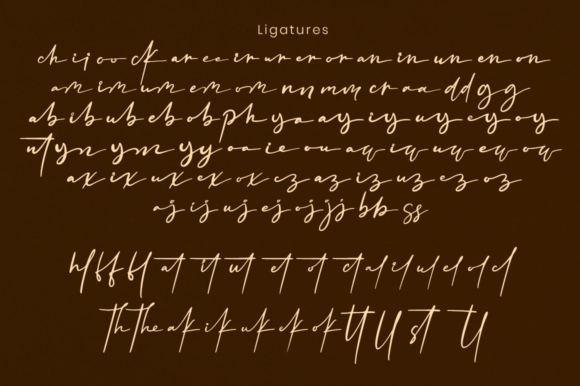 Ligatures
ch ij oo ck ar ee ir ur er or an in un en on
am im um em om nn mm cr aa dd gg
ab ib ub eb ob ph ya ay iy uy ey oy
nt yn ym yy oa ie ou aw iw uw ew ow
ax ix ux ex ox cz az iz uz ez oz
aj ij uj ej oj jj bb ss
at it ut et ot ct al il ul el ol cl
th the ak ik uk ek ok tt ll st